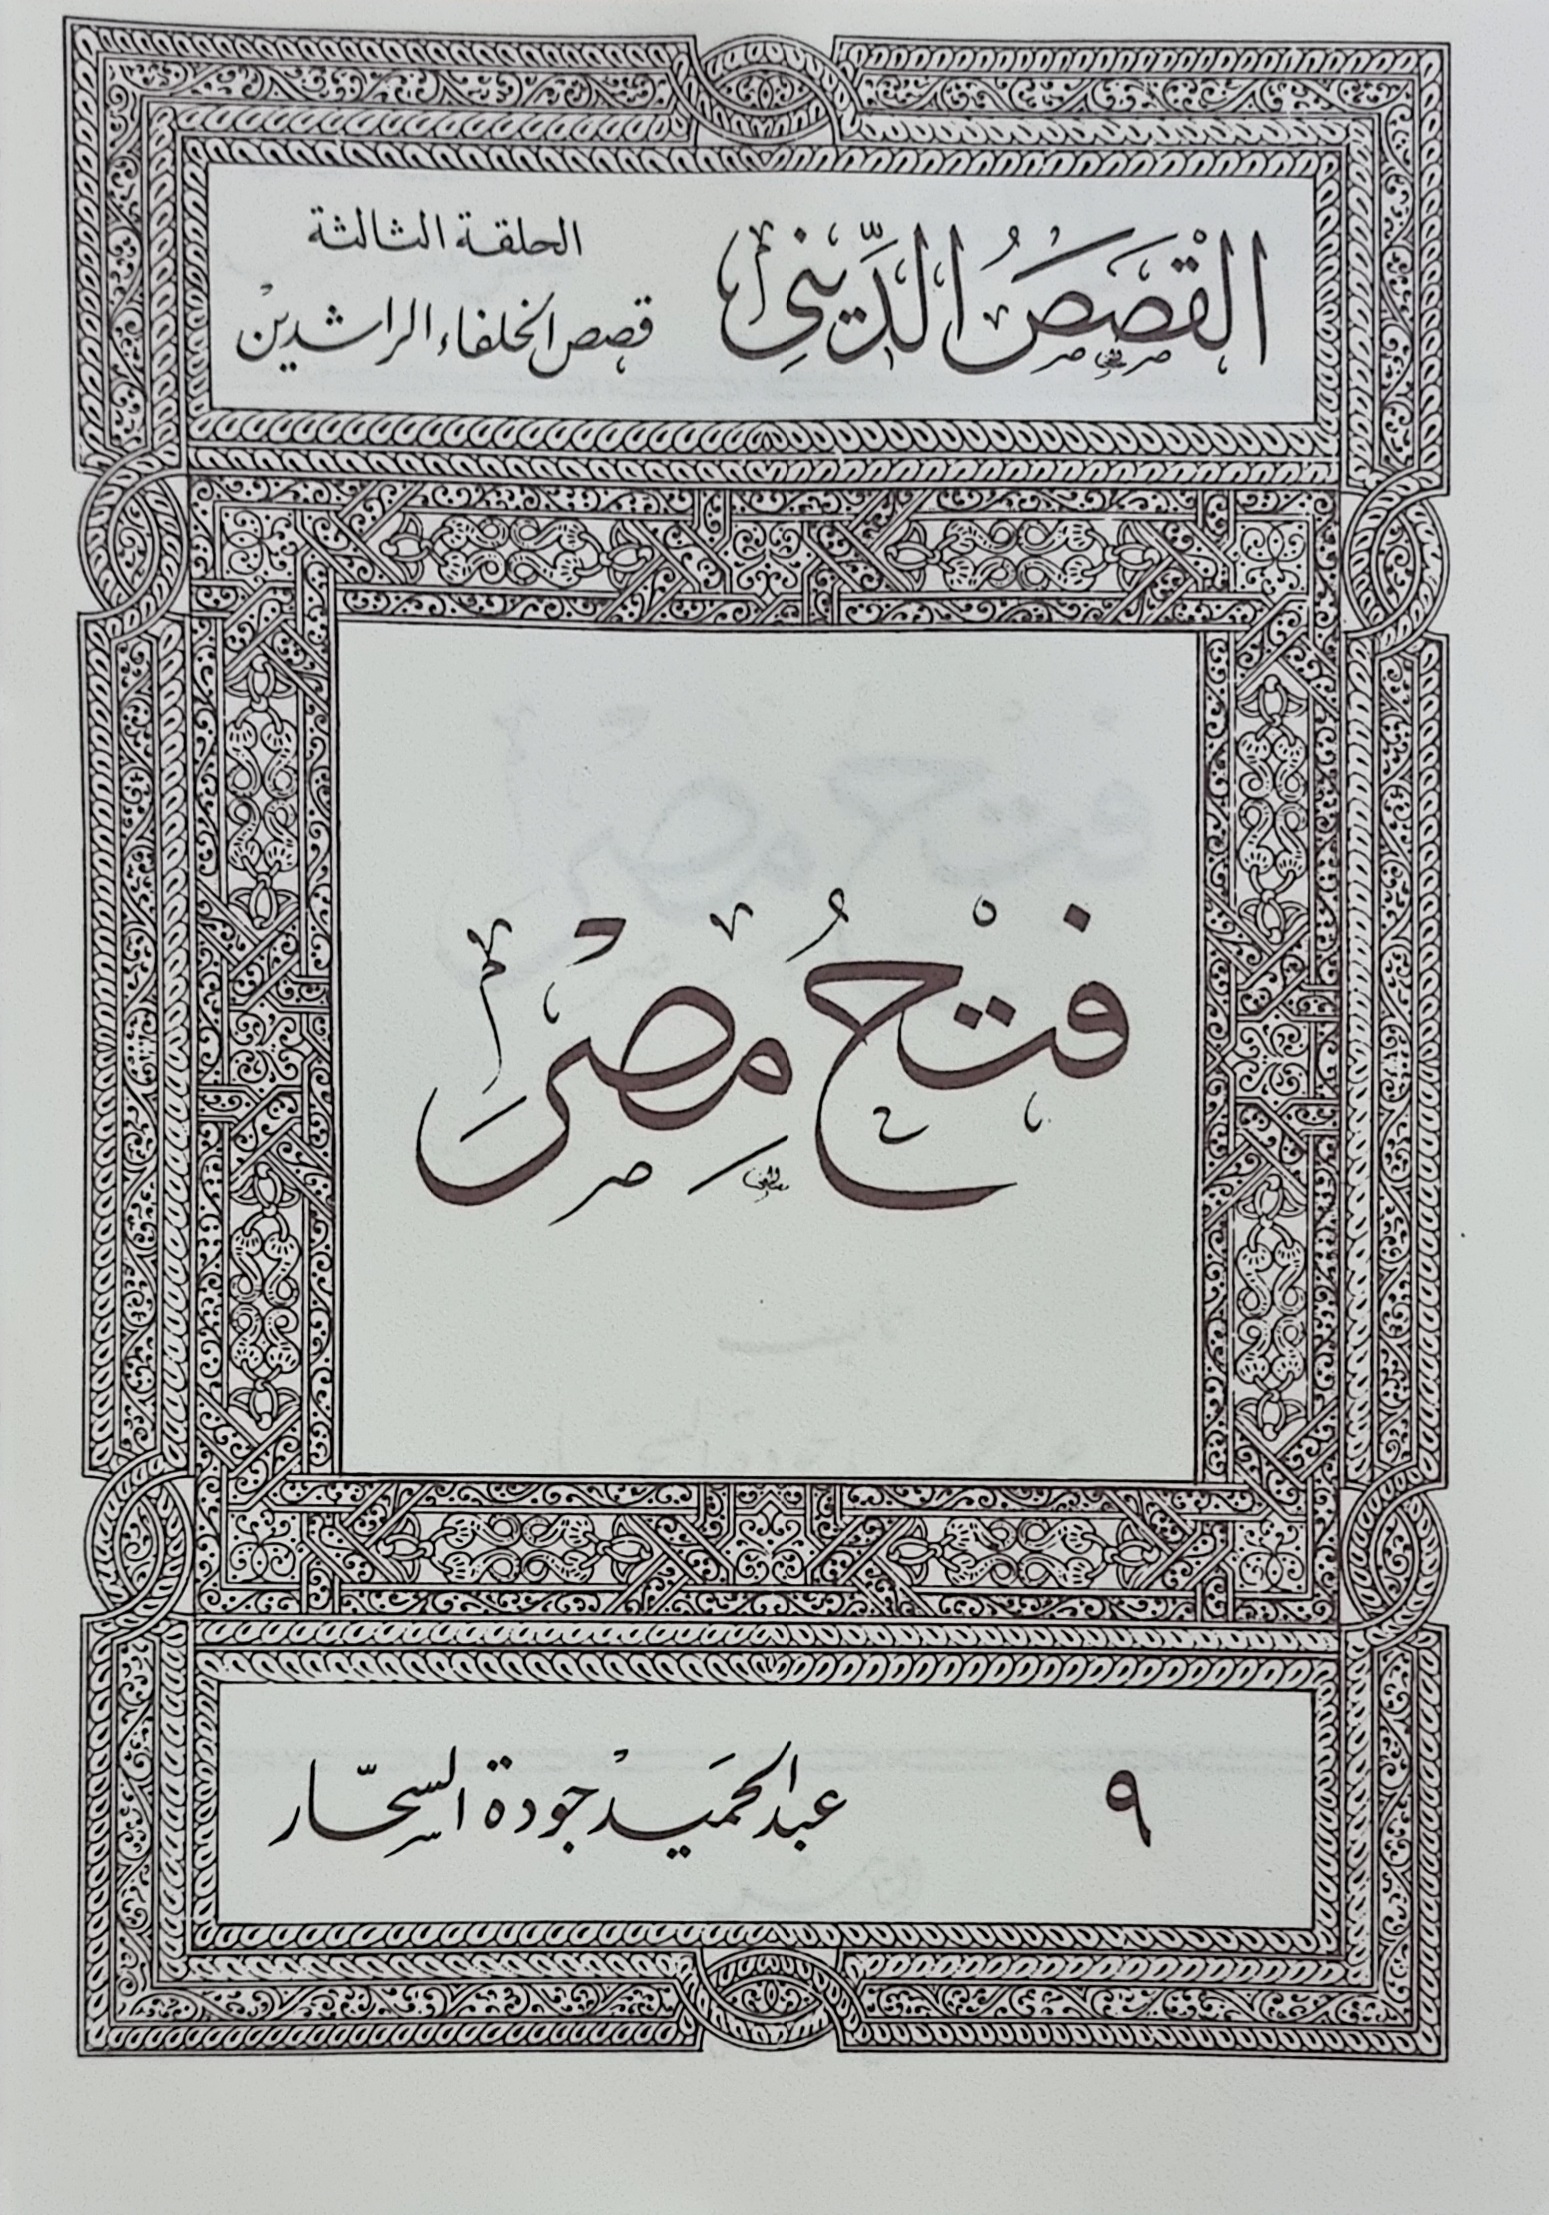 القَصَصُ الدِّينِي
الحلقة الثالثة
قصص الخلفاء الراشدين
فَتْحُ مِصْرَ
٩
عبد الحَميد جودة السحّار